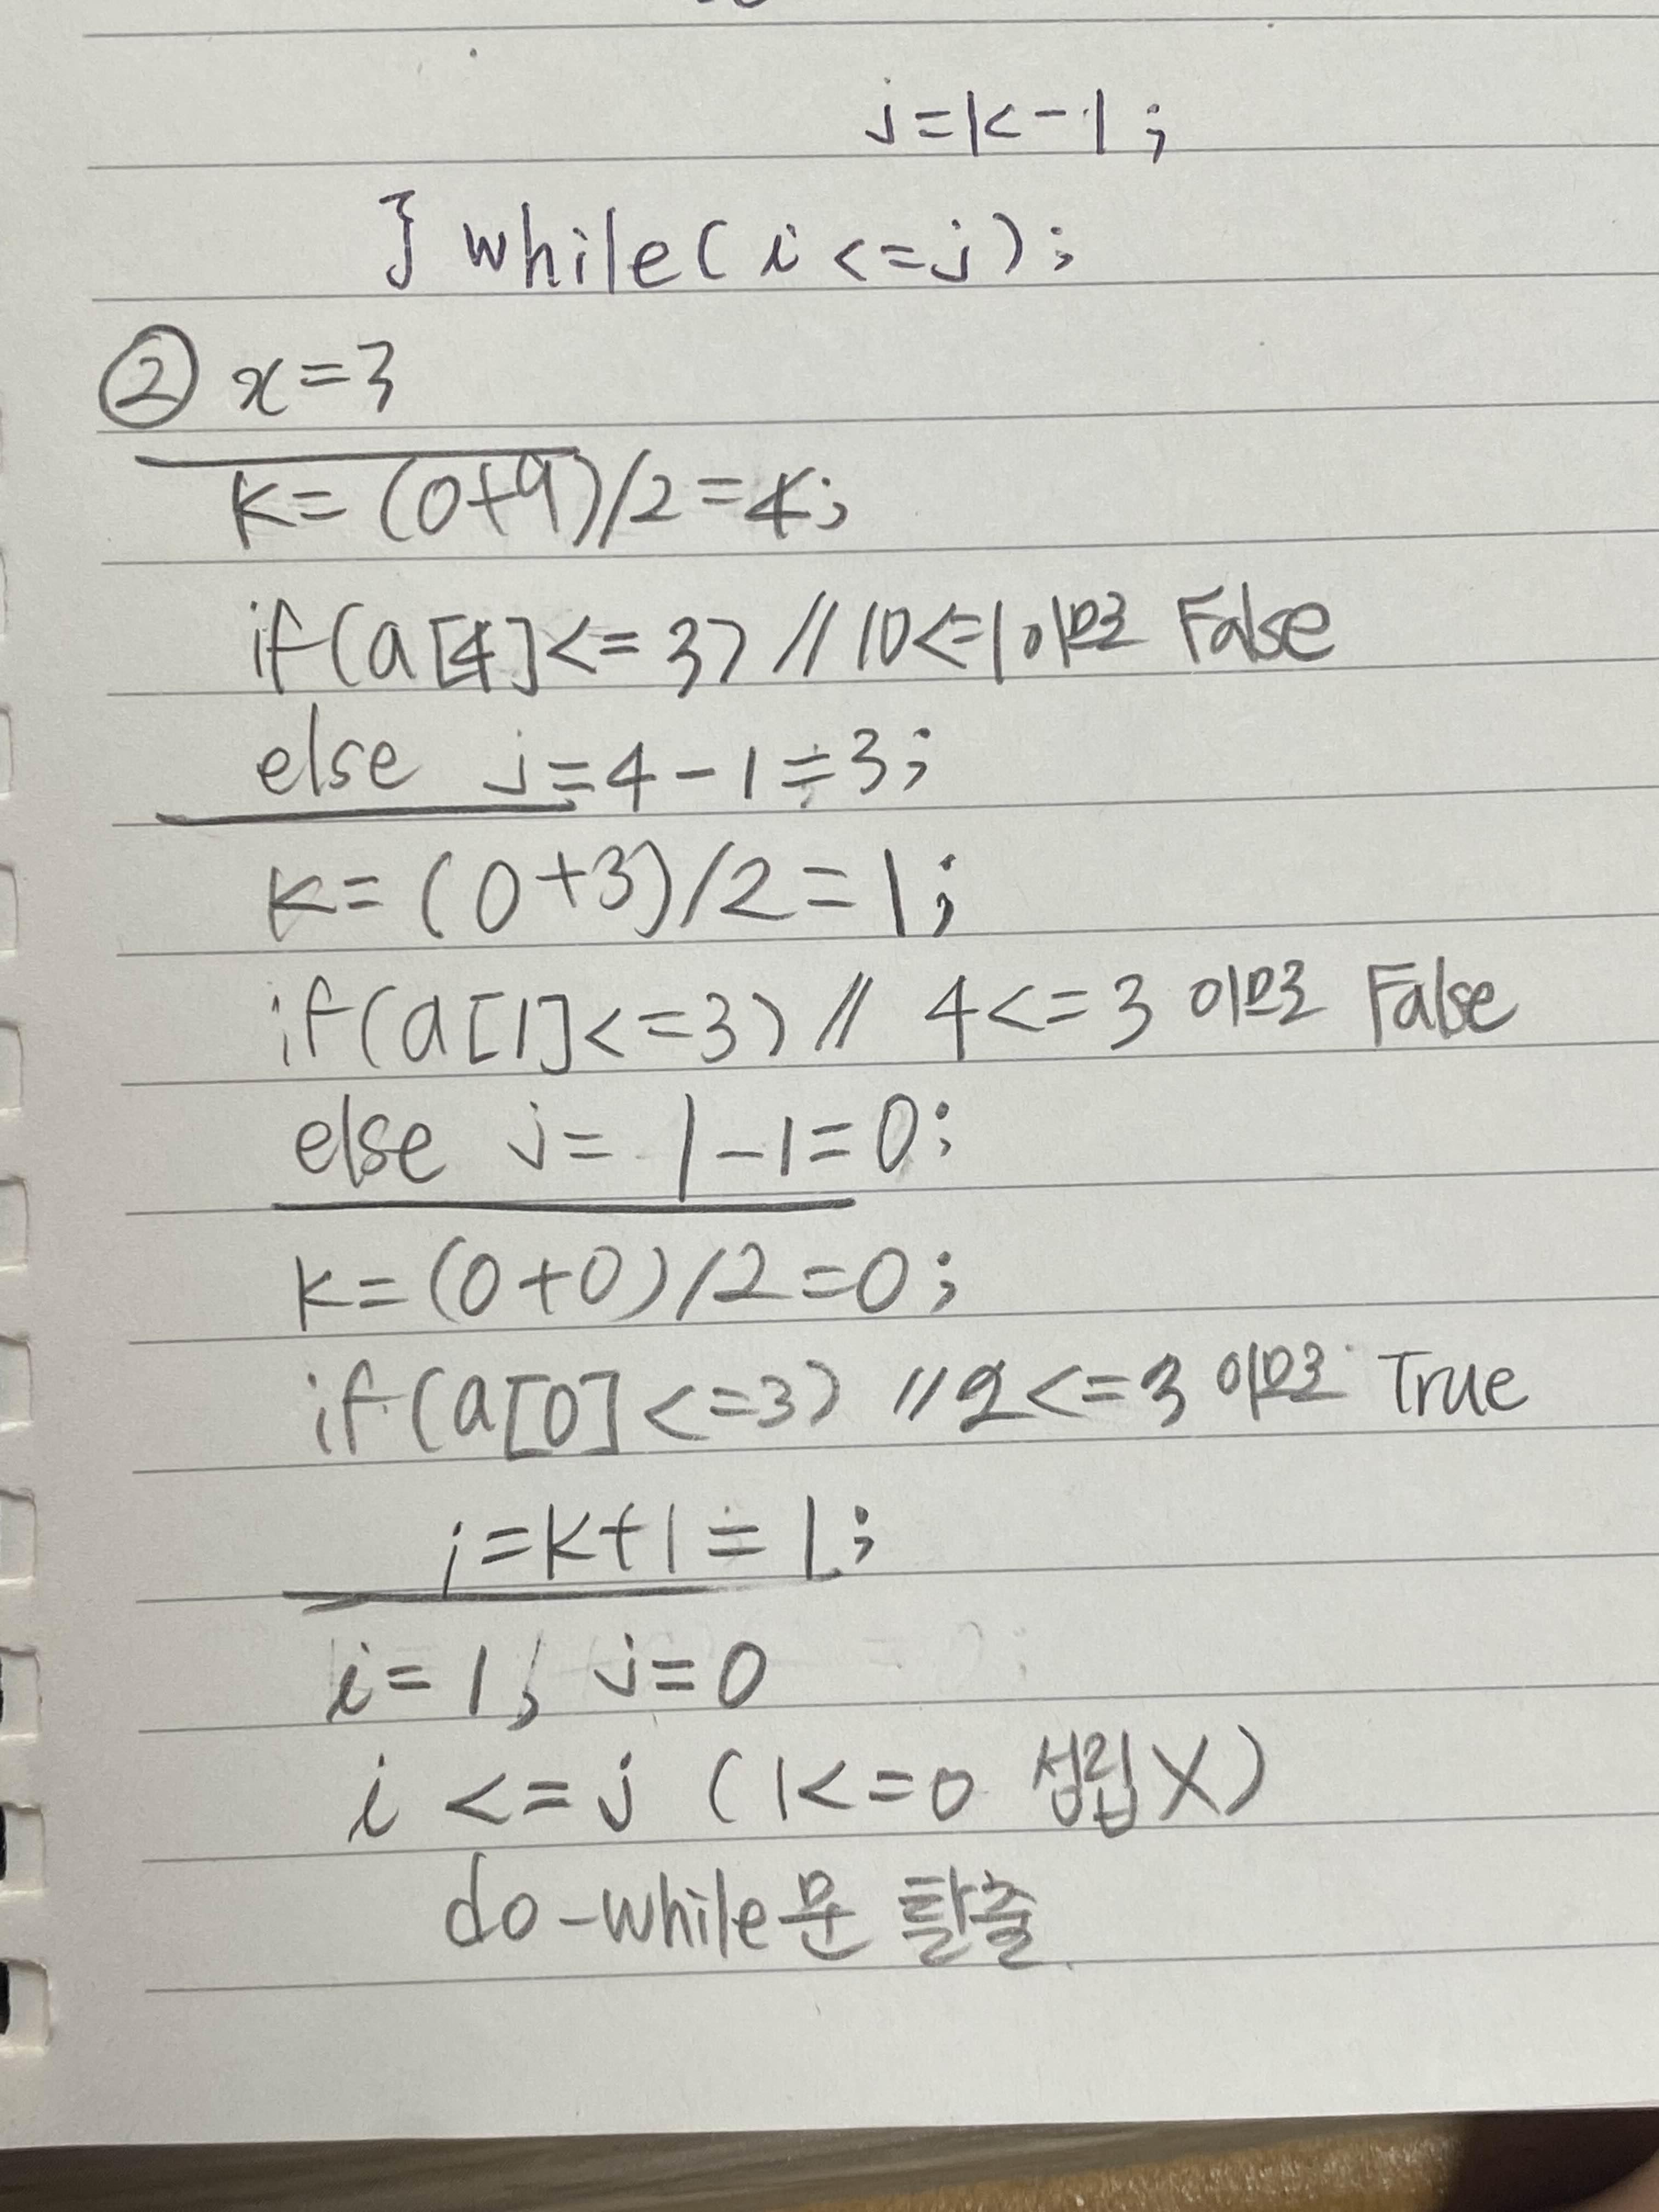 j=k-1;
} while(i<=j);
② x=3
k=(0+9)/2=4;
if(a[4]<=3) // 10<=1 이므로 False
else j=4-1=3;
k=(0+3)/2=1;
if(a[1]<=3) // 4<=3 이므로 False
else j=1-1=0;
k=(0+0)/2=0;
if(a[0]<=3) // 2<=3 이므로 True
i=k+1=1;
i=1, j=0
i<=j (1<=0 성립X)
do-while문 탈출